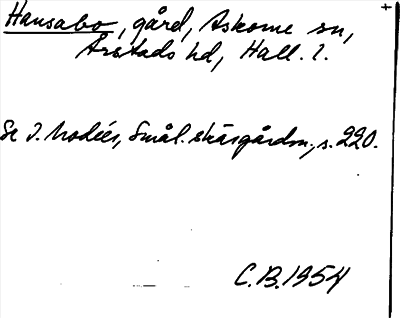 Hansabo, gård, Askome sn,
Årstads hd, Hall. l.
Se I. Modéer, Smål. skärgårdsn., s. 220.
C.B. 1954